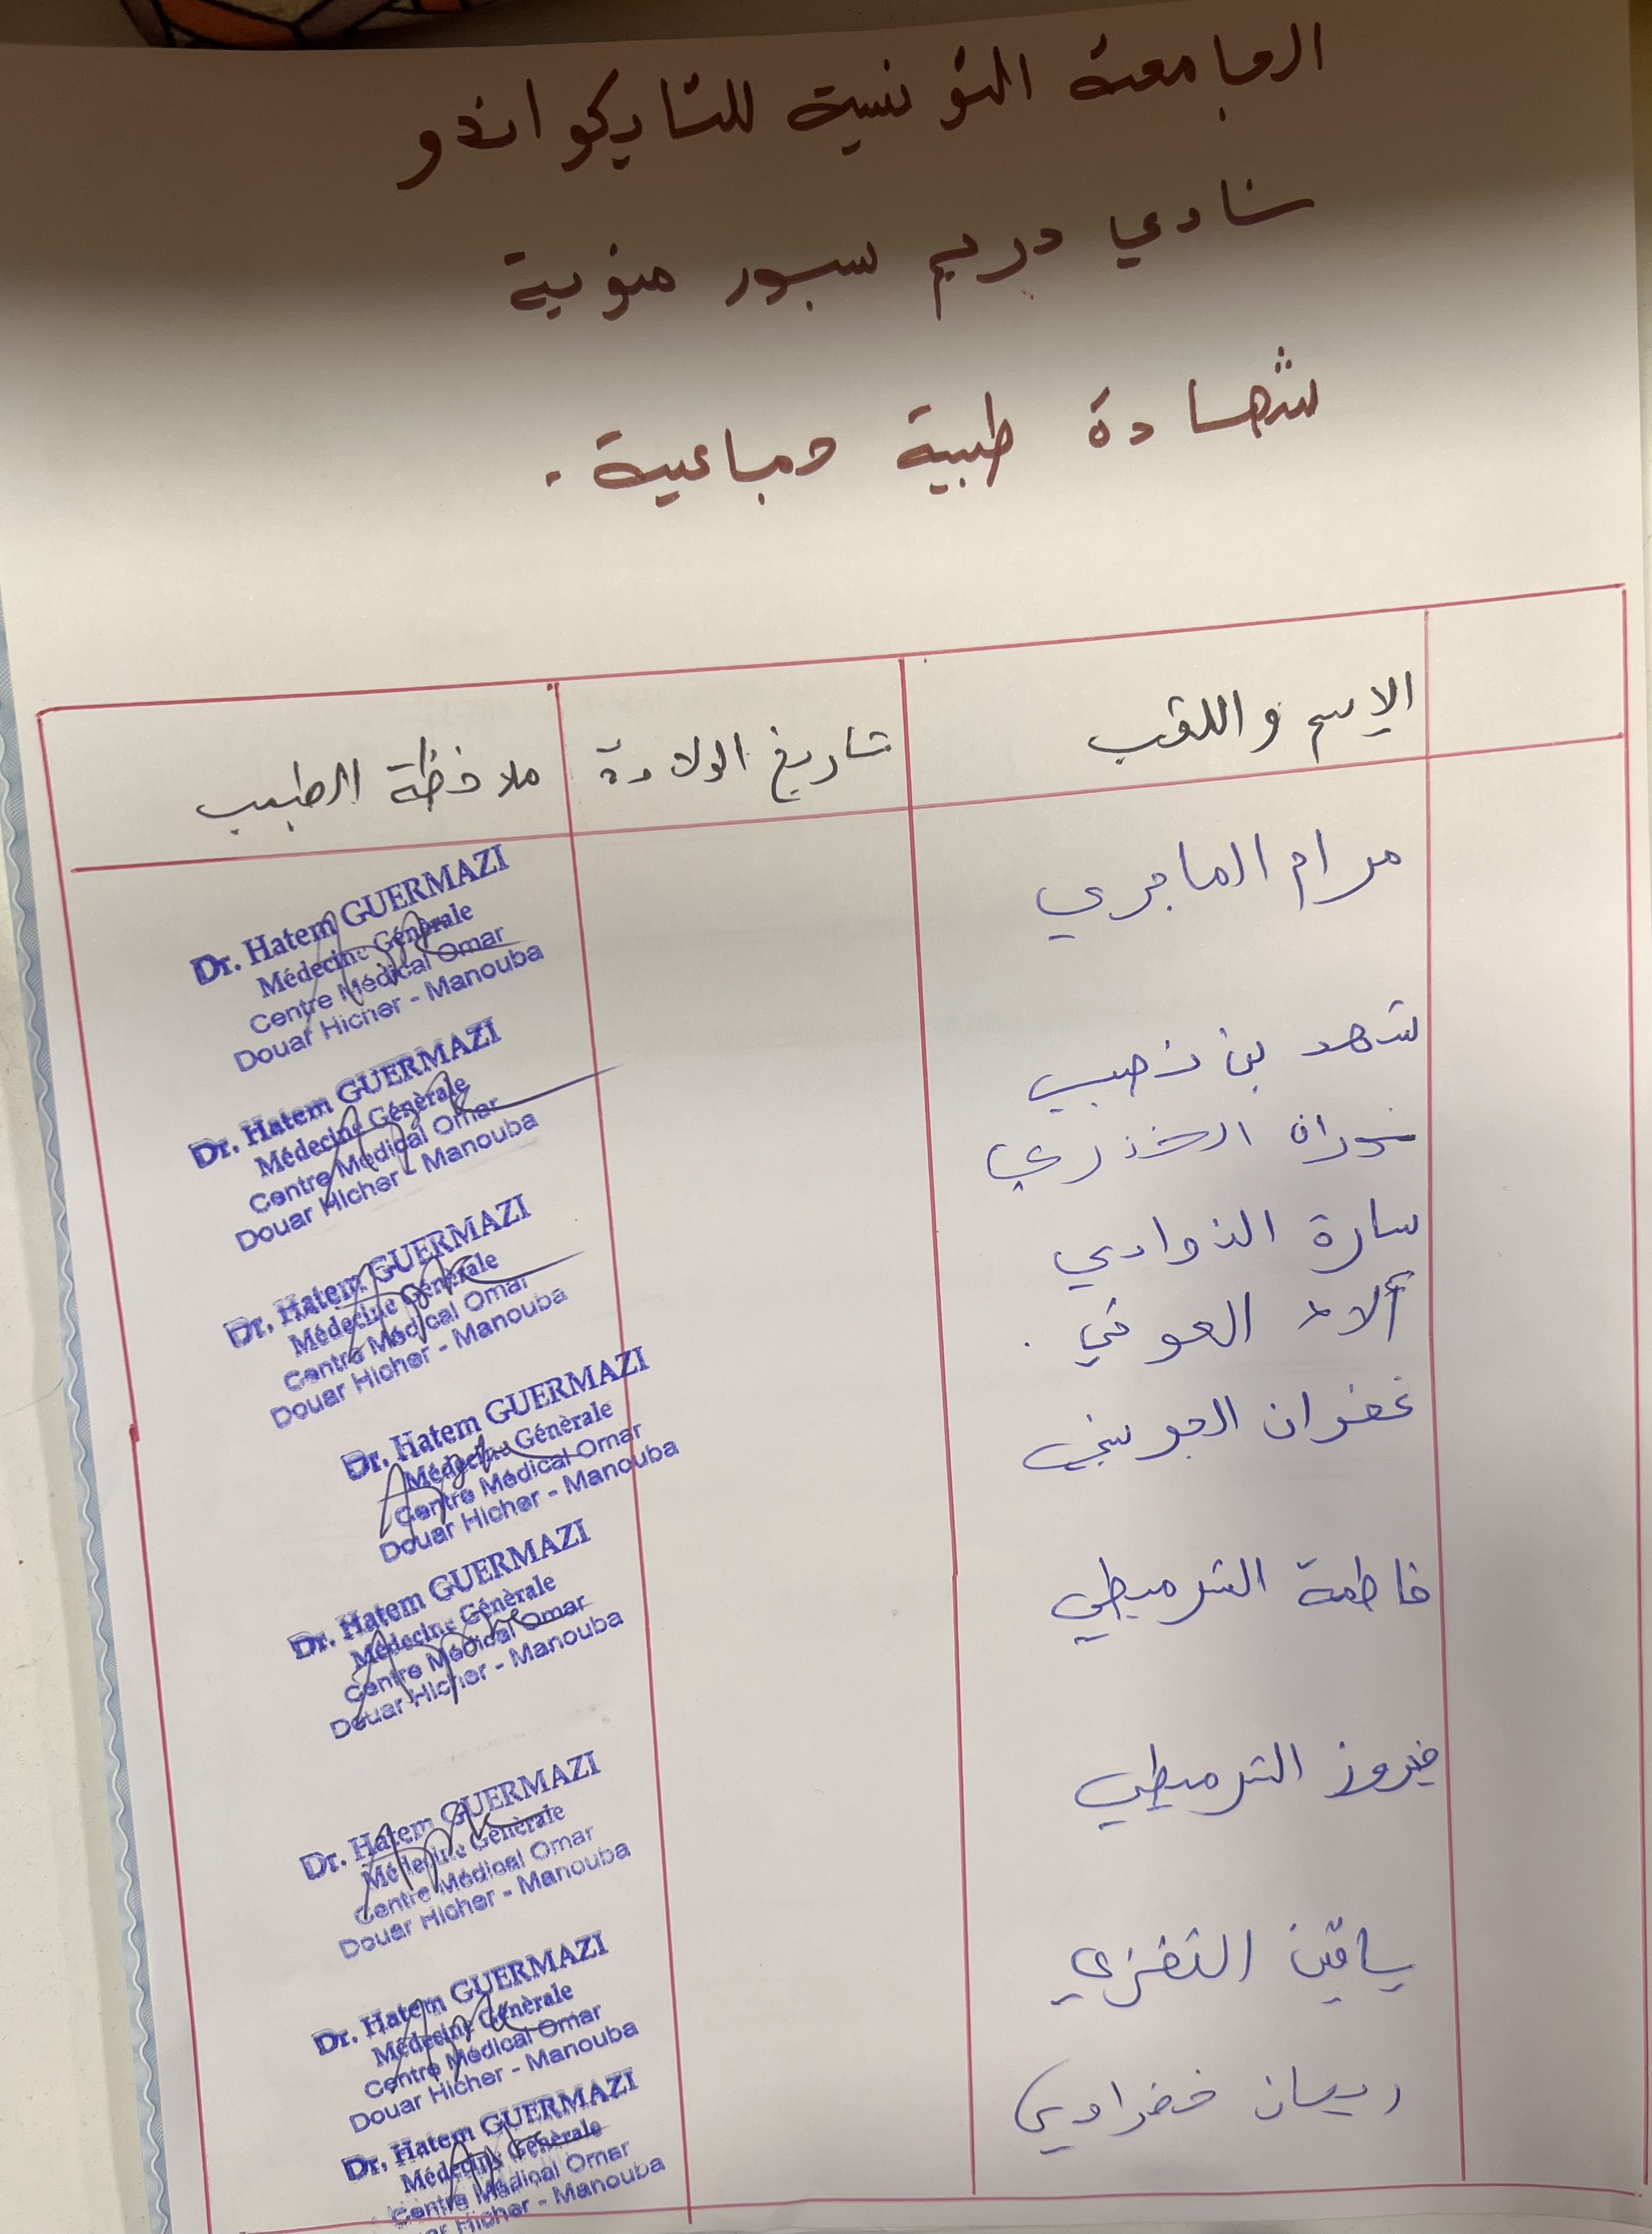 الجامعة التونسية للتايكواندو
نادي دريم سبور منوبة
شهادة طبية جماعية .
الإسم واللقب
تاريخ الولادة
ملاحظة الطبيب
مرام الماجري
Dr. Hatem GUERMAZI
Médecine Générale
Centre Médical Omar
Douar Hicher - Manouba
شهد بن ذهبي
Dr. Hatem GUERMAZI
Médecine Générale
Centre Médical Omar
Douar Hicher - Manouba
نوران الخذري
سارة الذوادي
Dr. Hatem GUERMAZI
Médecine Générale
Centre Médical Omar
Douar Hicher - Manouba
ألاء العوني .
غفران الجويني
Dr. Hatem GUERMAZI
Médecine Générale
Centre Médical Omar
Douar Hicher - Manouba
فاطمة الترميطي
Dr. Hatem GUERMAZI
Médecine Générale
Centre Médical Omar
Douar Hicher - Manouba
فيروز الترميطي
Dr. Hatem GUERMAZI
Médecine Générale
Centre Médical Omar
Douar Hicher - Manouba
ياقين النفزي
Dr. Hatem GUERMAZI
Médecine Générale
Centre Médical Omar
Douar Hicher - Manouba
ريمان خضراوي
Dr. Hatem GUERMAZI
Médecine Générale
Centre Médical Omar
Hicher - Manouba